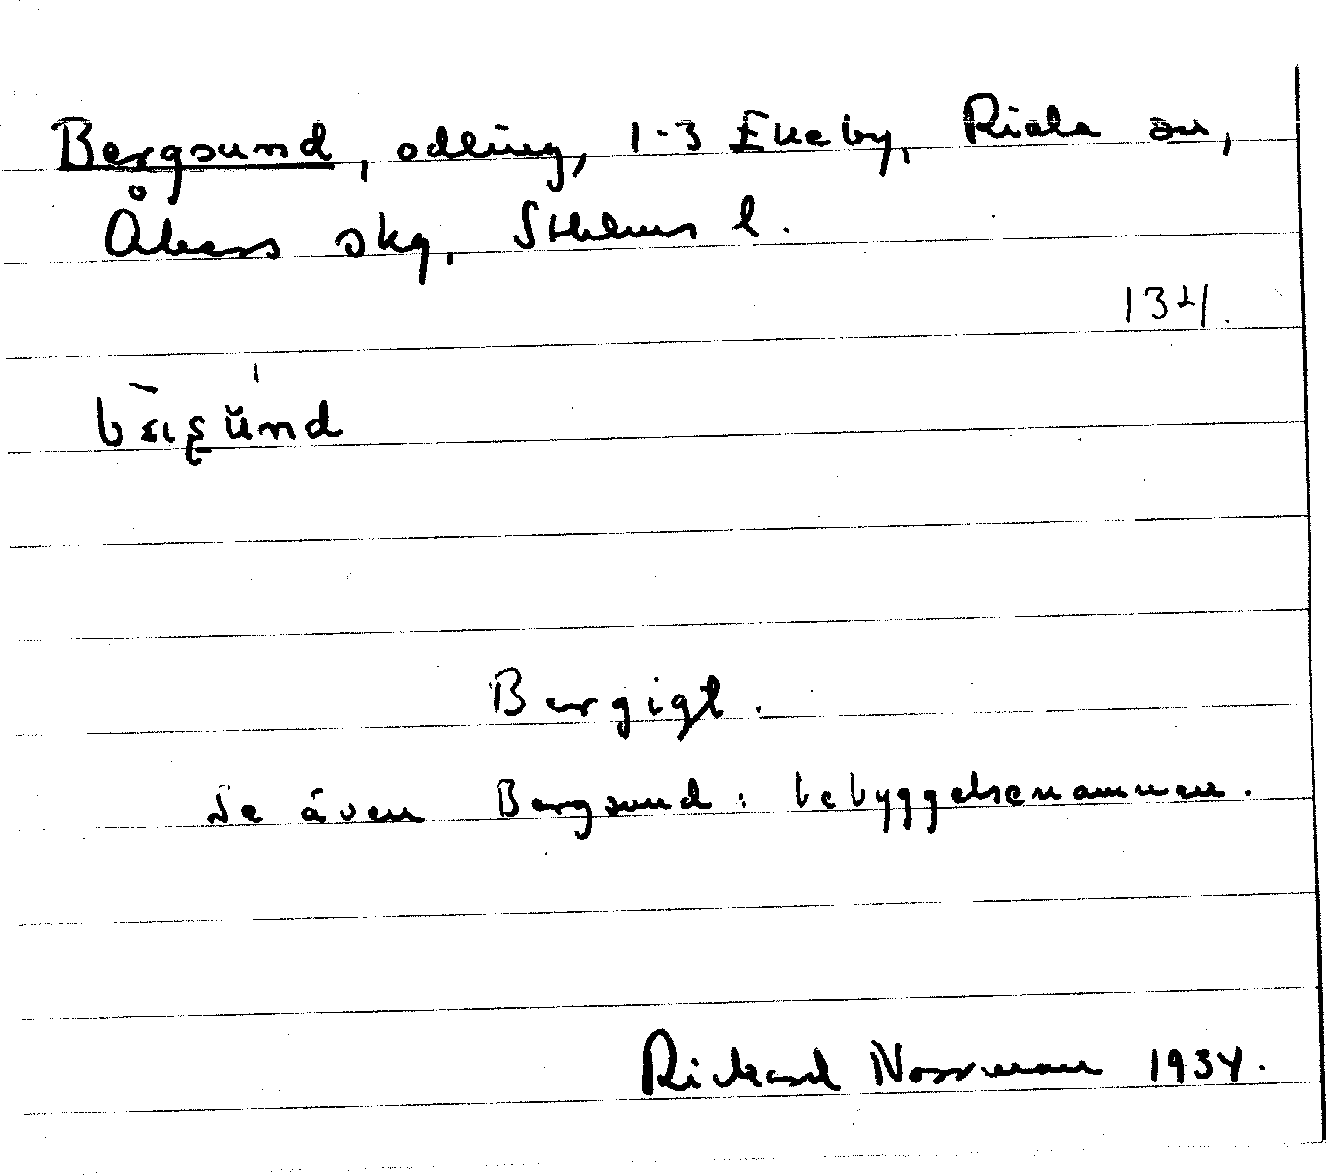 Bergsund, odling, 1-3 Ekeby, Riala sn,
Åkers skg, Sthlms l.
134.
Bergigt.
Se även Bergsund: bebyggelsenamnen.
Rickard 1934.